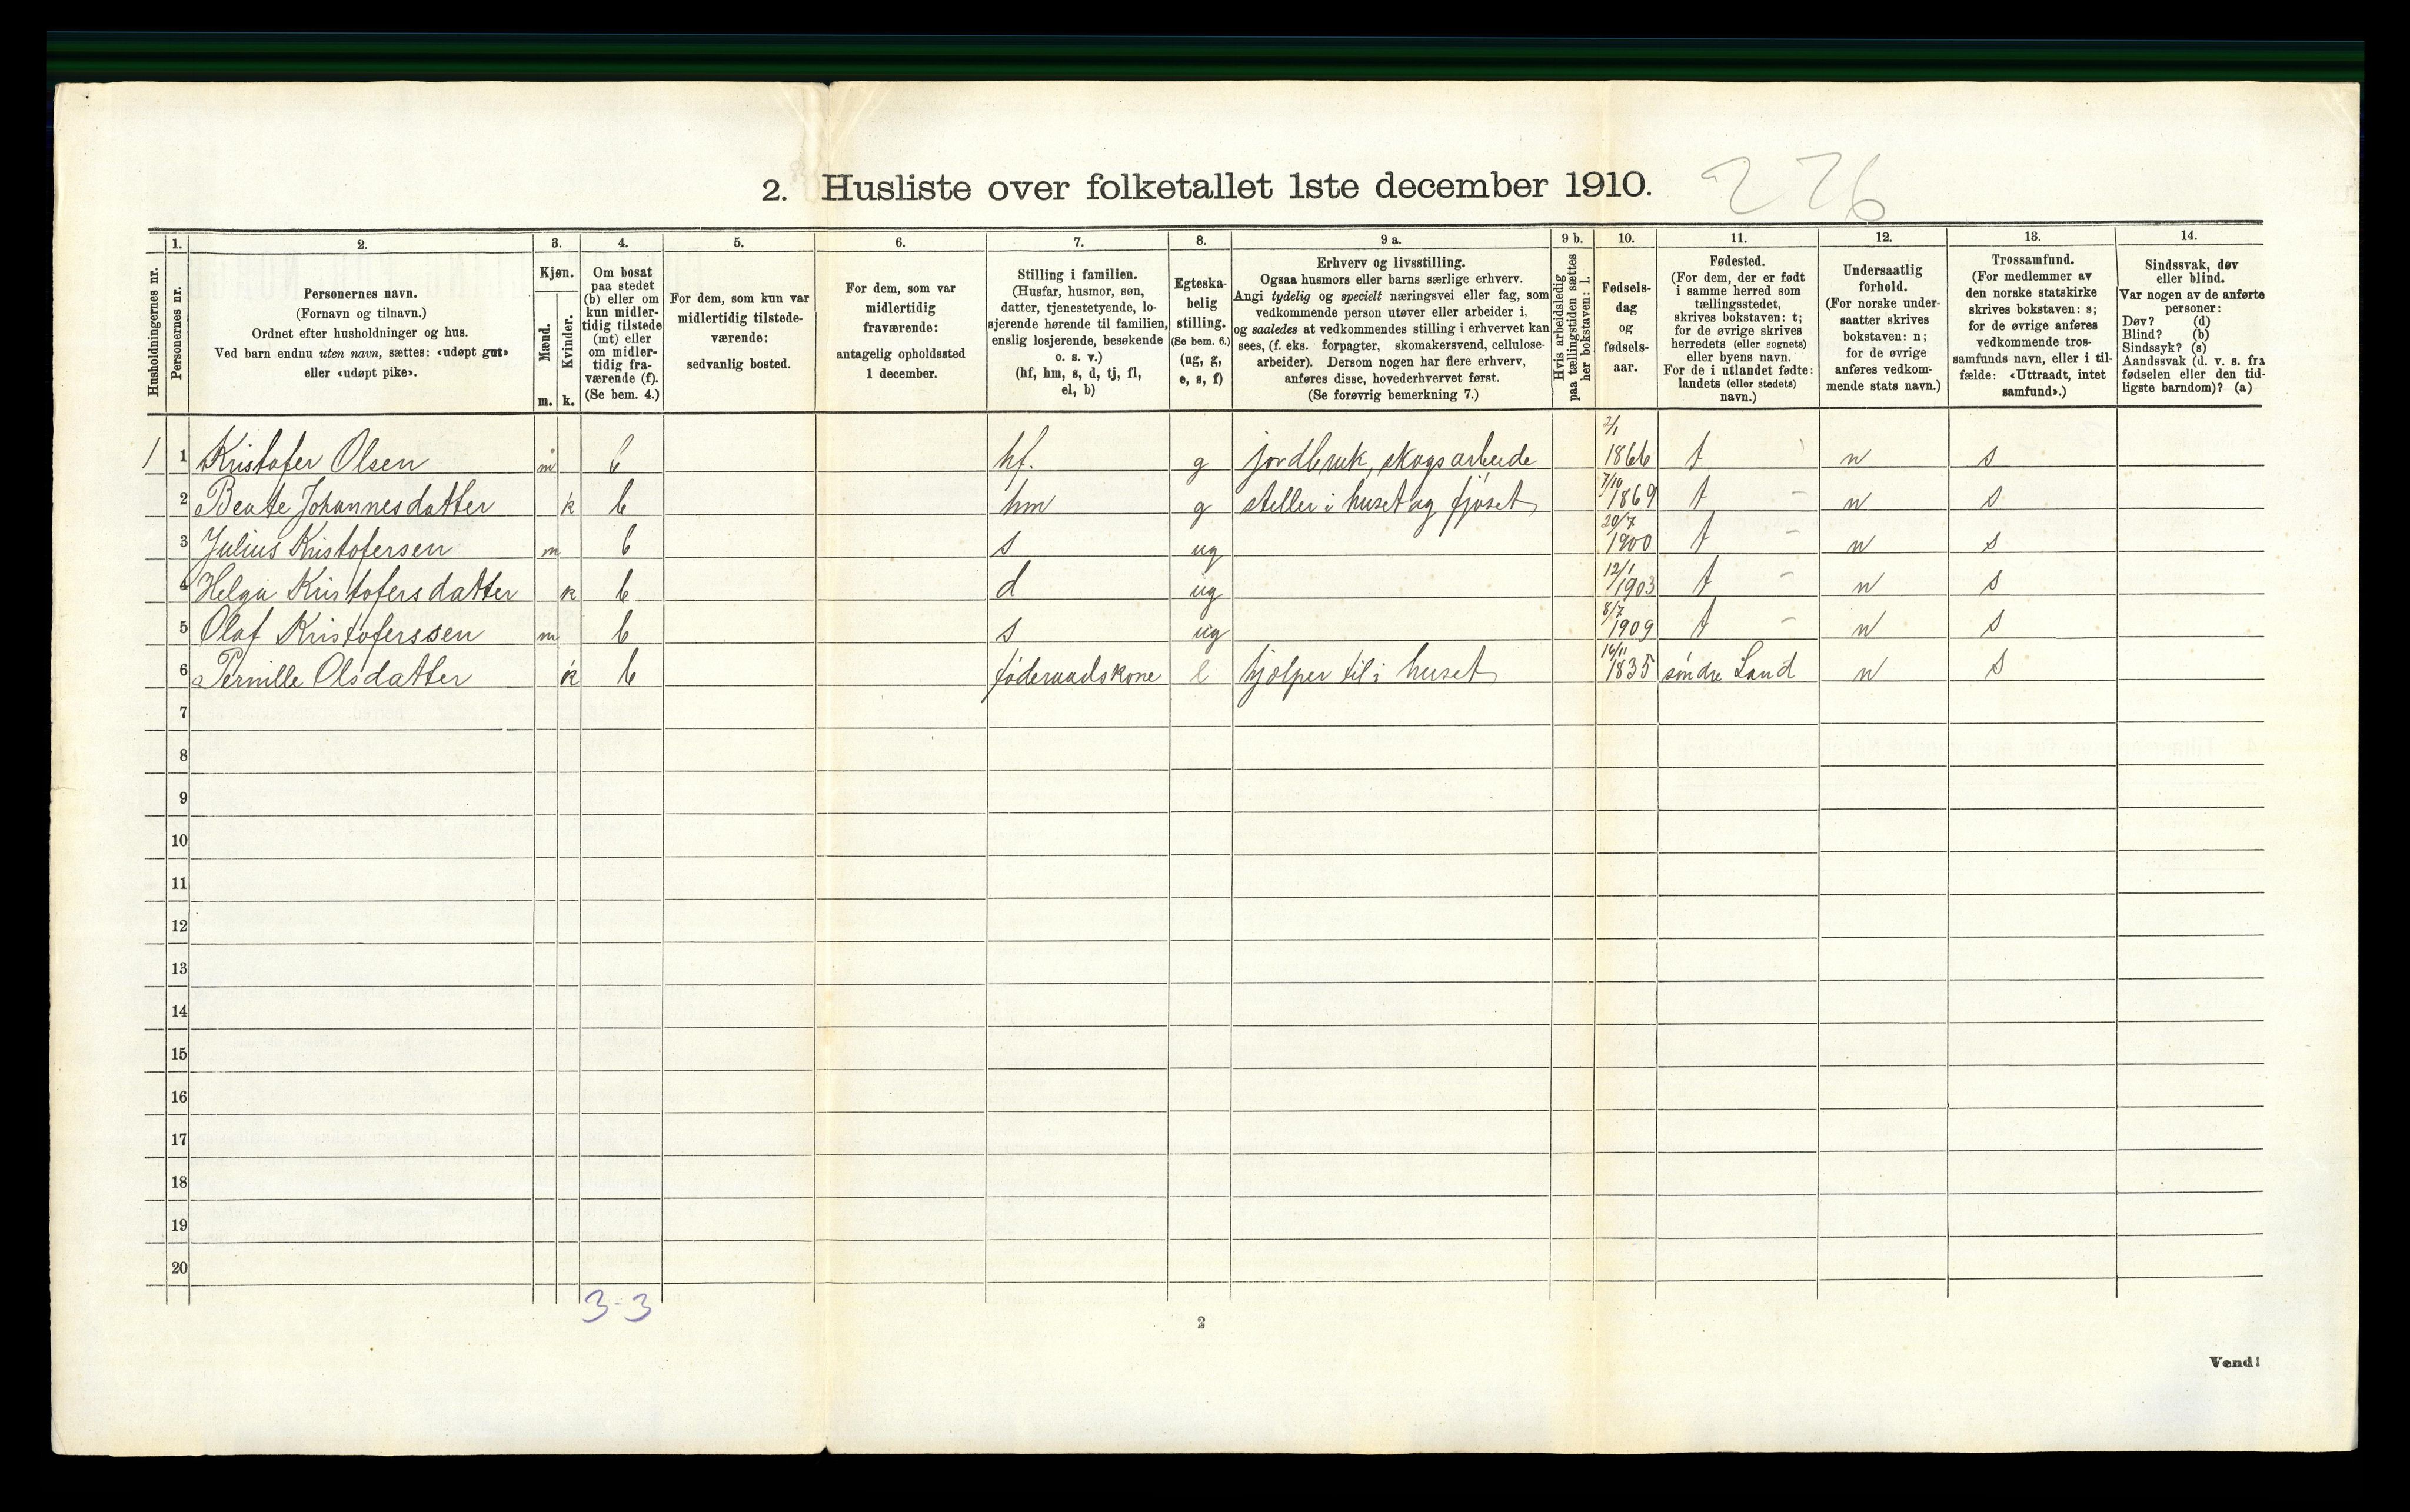 2. Husliste over folketallet 1ste december 1910. 226
Husholdningernes nr.
1. Personernes nr.
2. Personernes navn.
(Fornavn og tilnavn.)
Ordnet efter husholdninger og hus.
Ved barn endnu uten navn, sættes: «udøpt gut»
eller «udøpt pike».
3. Kjøn.
Mænd. m.
Kvinder. k.
4. Om bosat
paa stedet
(b) eller om
kun midler-
tidig tilstede
(mt) eller
om midler-
tidig fra-
værende (f).
(Se bem. 4.)
5. For dem, som kun var
midlertidig tilstede-
værende:
sedvanlig bosted.
6. For dem, som var
midlertidig
fraværende:
antagelig opholdssted
1 december.
7. Stilling i familien.
(Husfar, husmor, søn,
datter, tjenestetyende, lo-
sjerende hørende til familien,
enslig losjerende, besøkende
o. s. v.)
(hf, hm, s, d, tj, fl,
el, b)
8. Egteska-
belig
stilling.
(Se bem. 6.)
(ug, g,
e, s, f)
9 a. Erhverv og livsstilling.
Ogsaa husmors eller barns særlige erhverv.
Angi tydelig og specielt næringsvei eller fag, som
vedkommende person utøver eller arbeider i,
og saaledes at vedkommendes stilling i erhvervet kan
sees, (f. eks. forpagter, skomakersvend, cellulose-
arbeider). Dersom nogen har flere erhverv,
anføres disse, hovederhvervet først.
(Se forøvrig bemerkning 7.)
9 b. Hvis arbeidsledig
paa tællingstiden sættes
her bokstaven: l.
10. Fødsels-
dag
og
fødsels-
aar.
11. Fødested.
(For dem, der er født
i samme herred som
tællingsstedet,
skrives bokstaven: t;
for de øvrige skrives
herredets (eller sognets)
eller byens navn.
For de i utlandet fødte:
landets (eller stedets)
navn.)
12. Undersaatlig
forhold.
(For norske under-
saatter skrives
bokstaven: n;
for de øvrige
anføres vedkom-
mende stats navn.)
13. Trossamfund.
(For medlemmer av
den norske statskirke
skrives bokstaven: s;
for de øvrige anføres
vedkommende tros-
samfunds navn, eller i til-
fælde: «Uttraadt, intet
samfund».)
14. Sindssvak, døv
eller blind.
Var nogen av de anførte
personer:
Døv? (d)
Blind? (b)
Sindssyk? (s)
Aandssvak (d. v. s. fra
fødselen eller den tid-
ligste barndom)? (a)
1 1 Kristofer Olsen m b hf. g jordbruk, skogsarbeide 2/1 1866 t n s
2 Beate Johannesdatter k b hm g steller i huset og fjøset 7/10 1869 t - n s
3 Julius Kristofersen m b s ug 20/7 1900 t - n s
4 Helga Kristofersdatter k b d ug 12/1 1903 t - n s
5 Olaf Kristoferssen m b s ug 8/7 1909 t - n s
6 Pernille Olsdatter k b føderaadskone e hjelper til i huset 16/11 1835 søndre Land n s
7
8
9
10
11
12
13
14
15
16
17
18
19
20
3-3
2
Vend!